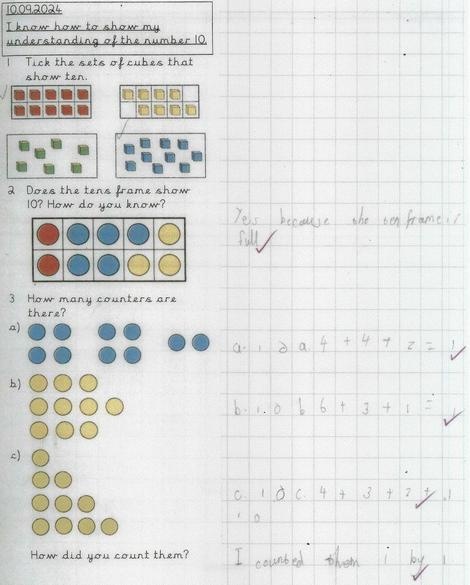 10.09.2024
I know how to show my
understanding of the number 10.
1 Tick the sets of cubes that
show ten.
2 Does the tens frame show
10? How do you know?
Yes because the ten frame is
full
3 How many counters are
there?
a)
a. 10 a 4 + 4 + 2 = 1
b)
b. 1.0 b 6 + 3 + 1 =
c)
c. 10 c. 4 + 3 + 2 + 1
10
How did you count them?
I counted them 1 by 1